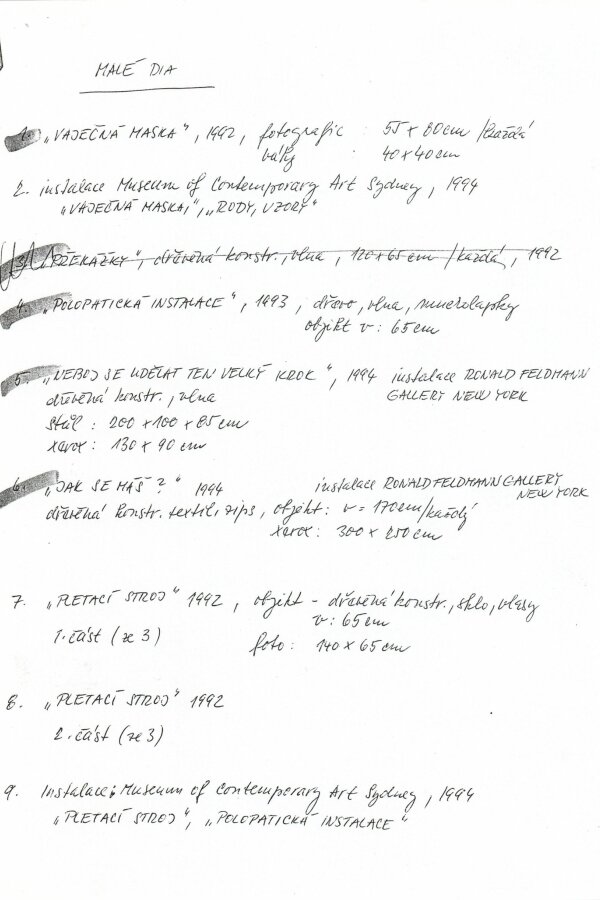 MALÉ DIA
1. „VAJEČNÁ MASKA", 1992, fotografie : 55 x 80cm /každá
války : 40x40cm
2. instalace Museum of Contemporary Art Sydney, 1994
„VAJEČNÁ MASKA", „RODY, VZORY"
3. „PŘEKÁŽKY", dřevěná konstr., vlna, 120x65 cm /každá, 1992
4. „POLOPATICKÁ INSTALACE", 1993, dřevo, vlna, mucholapky
objekt v: 65cm
5. „NEBOJ SE UDĚLAT TEN VELKÝ KROK", 1994 instalace RONALD FELDMANN
dřevěná konstr., vlna GALLERY NEW YORK
stůl : 200 x 100 x 85cm
xerox : 130 x 90 cm
6. „JAK SE MÁŠ?" 1994 instalace RONALD FELDMANN GALLERY
NEW YORK
dřevěná konstr. textil, zips, objekt: v = 170cm/každý
xerox: 300 x 250cm
7. „PLETACÍ STROJ" 1992, objekt - dřevěná konstr., sklo, vlasy
v: 65cm
1. část (ze 3)
foto: 140 x 65cm
8. „PLETACÍ STROJ" 1992
2. část (ze 3)
9. Instalace: Museum of Contemporary Art Sydney, 1994
„PLETACÍ STROJ", „POLOPATICKÁ INSTALACE"